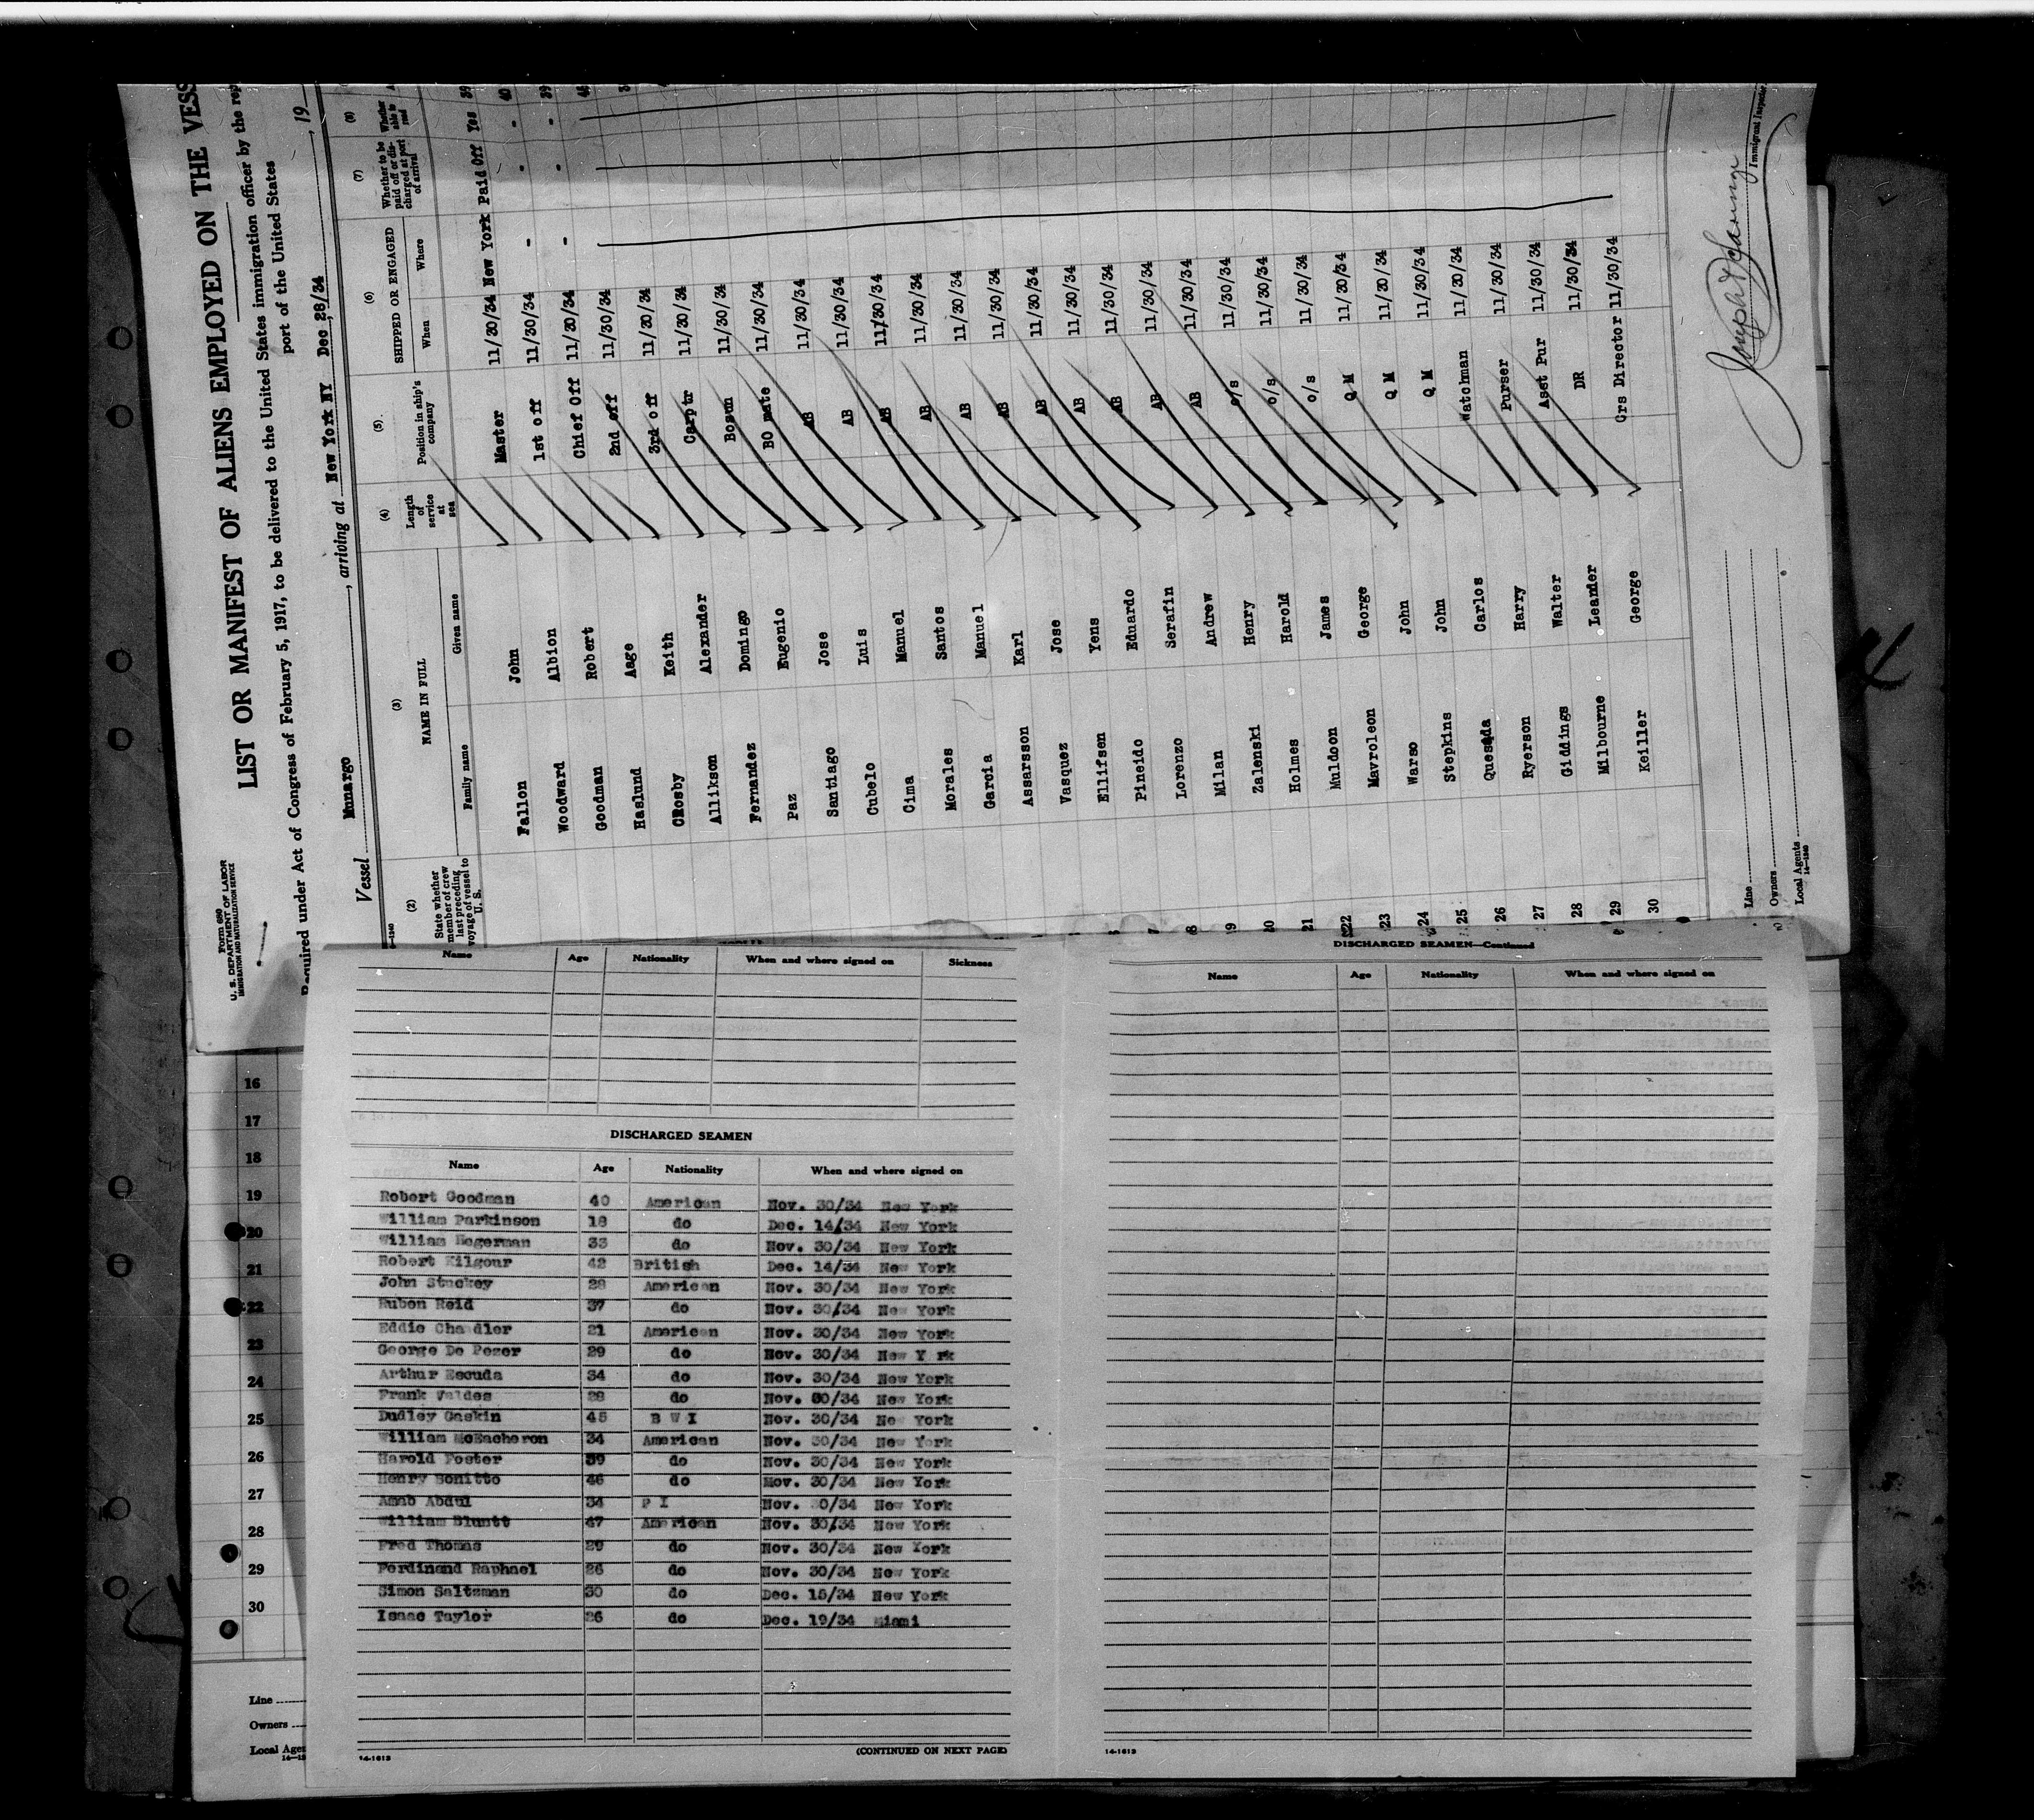 Form 680
U. S. DEPARTMENT OF LABOR
IMMIGRATION AND NATURALIZATION SERVICE
LIST OR MANIFEST OF ALIENS EMPLOYED ON THE VESS
Required under Act of Congress of February 5, 1917, to be delivered to the United States immigration officer by the rep
port of the United States
Vessel Munargo, arriving at New York NY Dec 28/34, 19
(2) (3) (4) (5) (6) (7) (8)
State whether member of crew last preceding voyage of vessel to U. S.
NAME IN FULL
Family name Given name
Length of service at sea
Position in ship's company
SHIPPED OR ENGAGED
When Where
Whether to be paid off or discharged at port of arrival
Whether able to read
Fallon John Master 11/30/34 New York Paid Off Yes 39
Woodward Albion 1st off 11/30/34 - - - 40
Goodman Robert Chief Off 11/30/34 - - - 39
Haslund Aage 2nd off 11/30/34
Crosby Keith 3rd off 11/30/34
Allikson Alexander Carptr 11/30/34
Fernandez Domingo Bosun 11/30/34
Paz Eugenio BO mate 11/30/34
Santiago Jose AB 11/30/34
Cubelo Luis AB 11/30/34
Cima Manuel AB 11/30/34
Morales Santos AB 11/30/34
Garcia Manuel AB 11/30/34
Assarsson Karl AB 11/30/34
Vasquez Jose AB 11/30/34
Ellifsen Yens AB 11/30/34
Pineido Eduardo AB 11/30/34
Lorenzo Serafin AB 11/30/34
Milan Andrew AB 11/30/34
Zalenski Henry o/s 11/30/34
Holmes Harold o/s 11/30/34
Muldoon James o/s 11/30/34
Mavroleon George Q M 11/30/34
Warso John Q M 11/30/34
Stepkins John Q M 11/30/34
Quesada Carlos Watchman 11/30/34
Ryerson Harry Purser 11/30/34
Giddings Walter Asst Pur 11/30/34
Milbourne Leander DR 11/30/34
Keiller George Crs Director 11/30/34
8
20
21
22
23
24
25
26
27
28
29
30
Line
Owners
Local Agents
14-1240
Immigrant Inspector
Name Age Nationality When and where signed on Sickness
DISCHARGED SEAMEN
Name Age Nationality When and where signed on
Robert Goodman 40 American Nov. 30/34 New York
William Parkinson 18 do Dec. 14/34 New York
William Hogerman 33 do Nov. 30/34 New York
Robert Kilgour 42 British Dec. 14/34 New York
John Stuckey 28 American Nov. 30/34 New York
Ruben Reid 37 do Nov. 30/34 New York
Eddie Chandler 21 American Nov. 30/34 New York
George De Pezer 29 do Nov. 30/34 New Y rk
Arthur Escuda 34 do Nov. 30/34 New York
Frank Valdes 28 do Nov. 30/34 New York
Dudley Gaskin 45 B W I Nov. 30/34 New York
William McEacheron 34 American Nov. 30/34 New York
Harold Foster 39 do Nov. 30/34 New York
Henry Bonitto 46 do Nov. 30/34 New York
Amab Abdul 34 P I Nov. 30/34 New York
William Bluntt 47 American Nov. 30/34 New York
Fred Thomas 29 do Nov. 30/34 New York
Ferdinand Raphael 26 do Nov. 30/34 New York
Simon Saltzman 30 do Dec. 15/34 New York
Isaac Taylor 26 do Dec. 19/34 Miami
14-1613
(CONTINUED ON NEXT PAGE)
DISCHARGED SEAMEN—Continued
Name Age Nationality When and where signed on
14-1613
16
17
18
19
20
21
22
23
24
25
26
27
28
29
30
Line
Owners
Local Agen